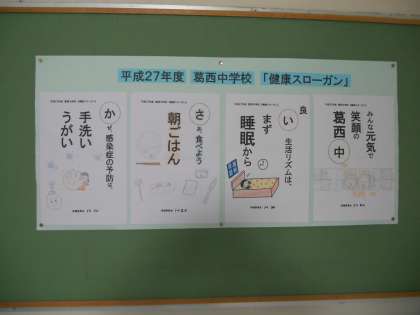 平成27年度 葛西中学校 「健康スローガン」
か ぜ、感染症の予防は、
手洗い
うがい
さ あ、食べよう
朝ごはん
良
い 生活リズムは、
まず
睡眠から
みんな元気で
笑顔の
葛西中